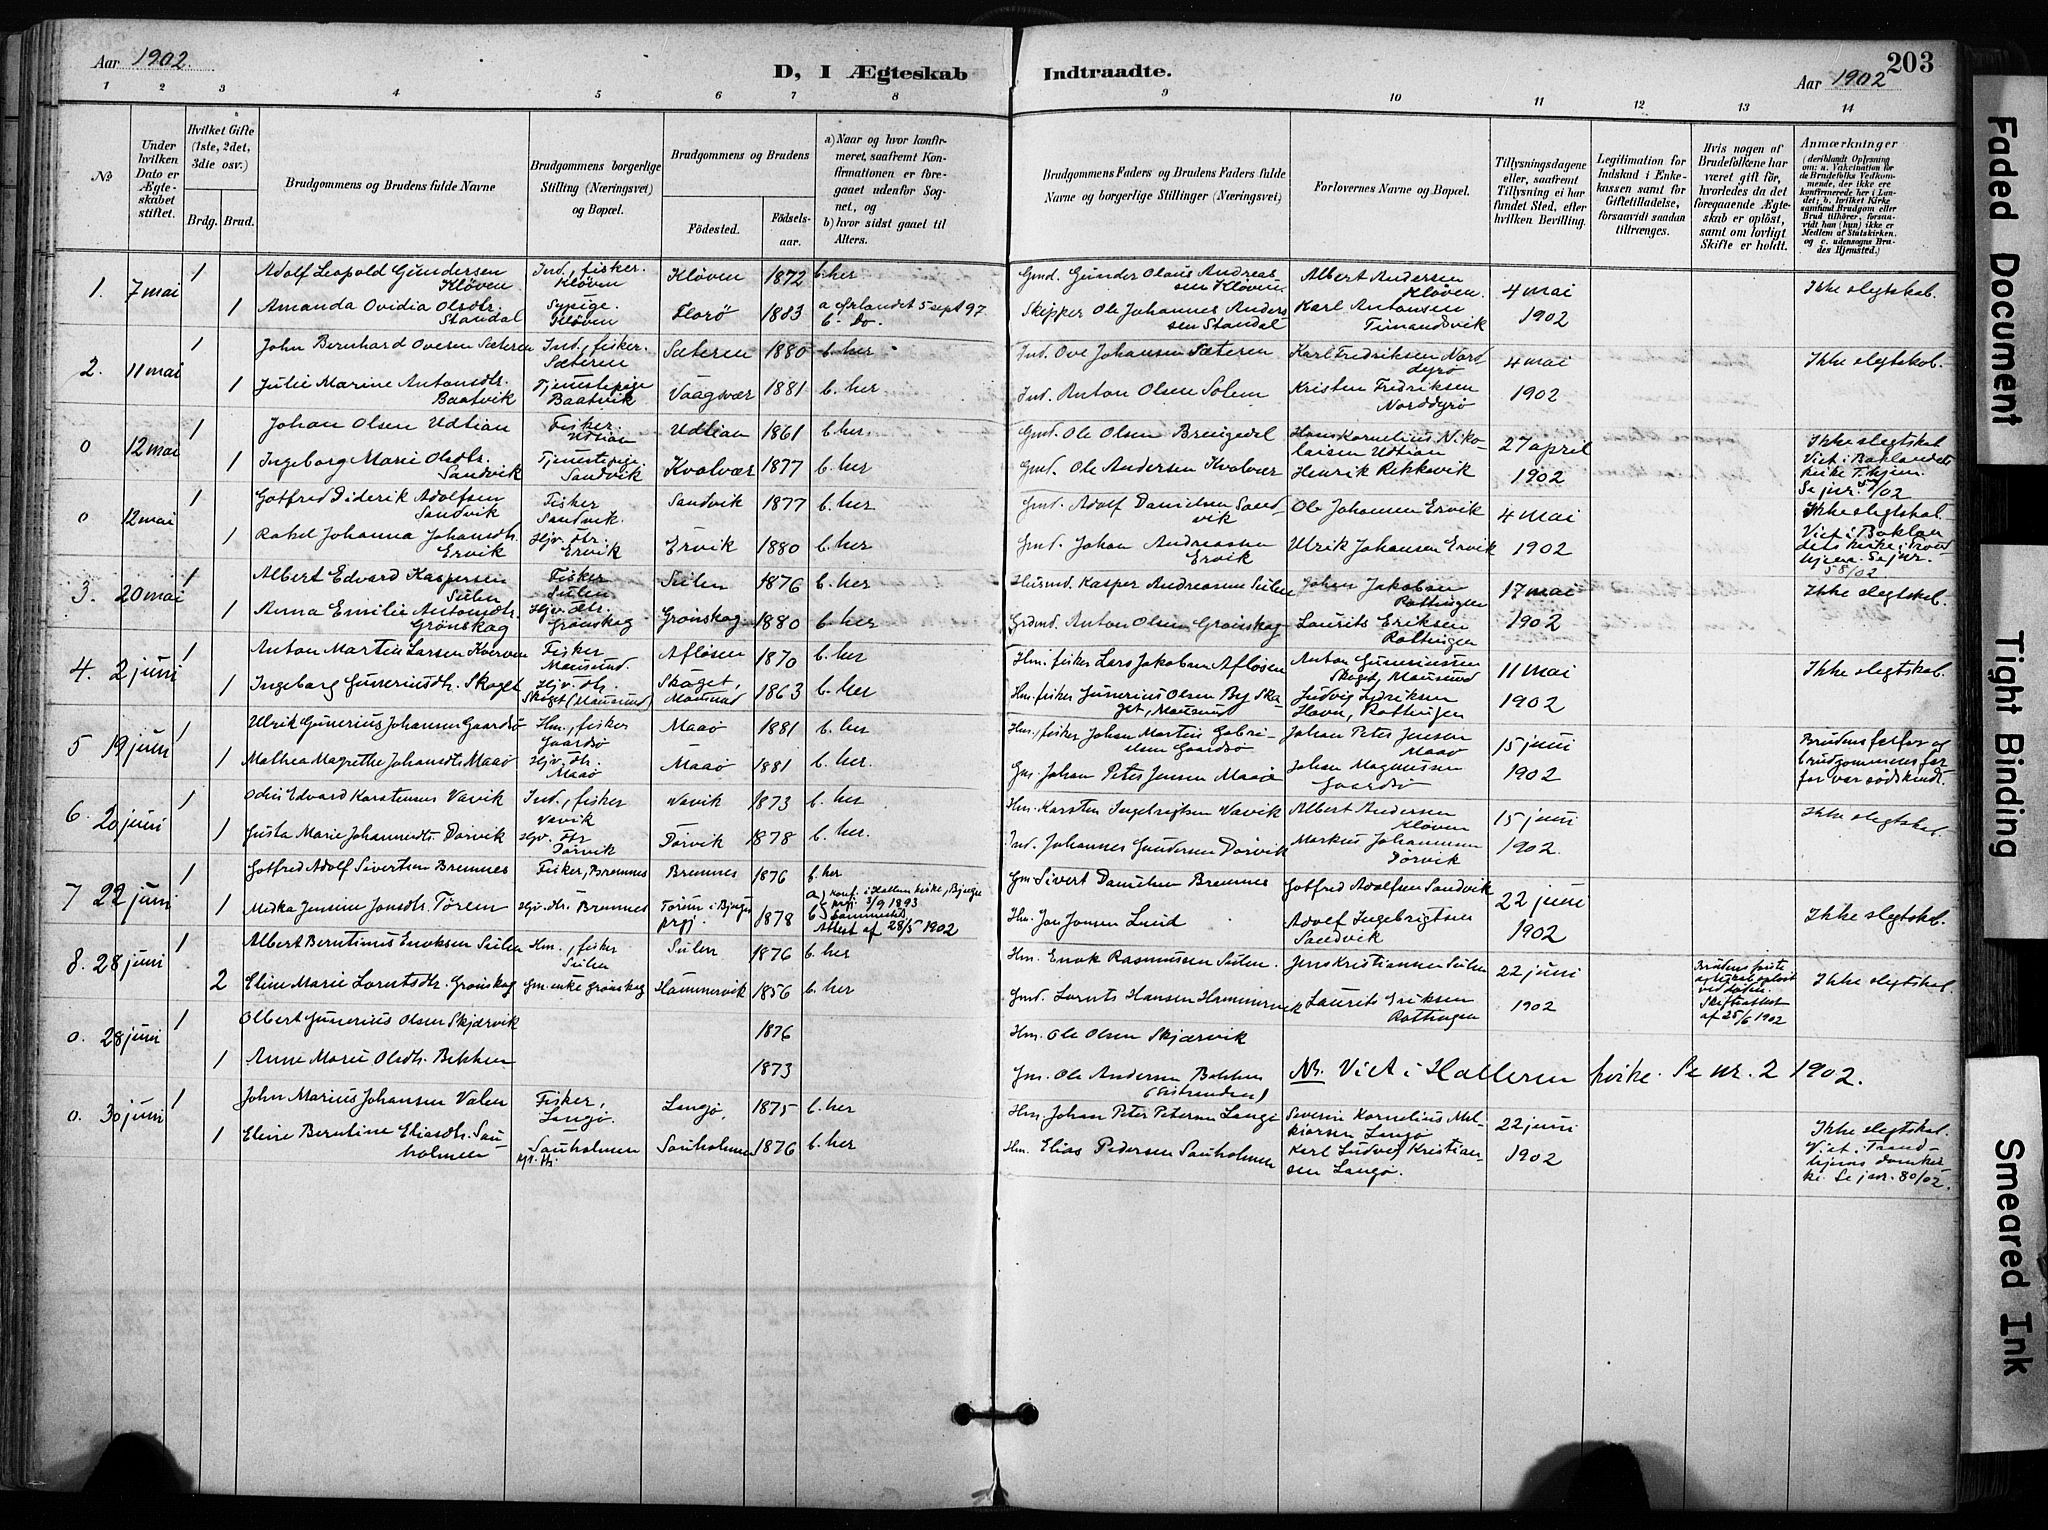 Aar 1902.
D, I Ægteskab Indtraadte.
203
Aar 1902
1 2 3 4 5 6 7 8 9 10 11 12 13 14
No
Under hvilken Dato er Ægteskabet stiftet.
Hvilket Gifte (1ste, 2det, 3die osv.)
Brdg. Brud.
Brudgommens og Brudens fulde Navne
Brudgommens borgerlige Stilling (Næringsvei) og Bopæl.
Brudgommens og Brudens
Födested.
Födselsaar.
a) Naar og hvor konfirmeret, saafremt Konfirmationen er foregaaet udenför Sognet, og
b) hvor sidst gaaet til Alters.
Brudgommens Faders og Brudens Faders fulde Navne og borgerlige Stillinger (Næringsvei)
Forlovernes Navne og Bopæl.
Tillysningsdagene eller, saafremt Tillysning ei har fundet Sted, efter hvilken Bevilling.
Legitimation for Indskud i Enkekassen samt for Giftetilladelse, forsaavidt saadan tiltrænges.
Hvis nogen af Brudefolkene har været gift för, hvorledes da det foregaaende Ægteskab er oplöst, samt om lovligt Skifte er holdt.
Anmærkninger
(deriblandt Oplysning om: a. Vakcination for de Brudefolks Vedkommende, der ikke ere konfirmerede her i Landet; b. hvilket Kirkesamfund Brudgom eller Brud tilhörer, forsaavidt han (hun) ikke er Medlem af Statskirken, og c. udensogns Brudes Hjemsted.)
1. 7 mai 1 Adolf Leopold Gundersen Kløven Ind., fisker. Kløven Kløven 1872 b. her Gmd. Gunder Olaus Andreassen Kløven Albert Andersen Kløven. 4 mai 1902 Ikke slegtskab.
1 Amanda Ovidia Olsdtr. Standal Sypige. Kløven Florø 1883 a Ørlandet 5 sept 97. b. do. Skipper Ole Johannes Anderssen Standal Karl Antonsen
2. 11 mai 1 John Bernhard Ovesen Sæteren Ind., fisker. Sæteren Sæteren 1880 b. her Ind. Ove Johansen Sæteren Karl Fredriksen Norddyrø 4 mai 1902 Ikke slegtskab.
1 Julie Marine Antonsdtr. Baatvik Tjenestepige Baatvik Vaagsvær 1881 b. her Ind. Anton Olsen Solem Kristen Fredriksen Norddyrø
0 12 mai 1 Johan Olsen Udtian Fisker. Udtian Udtian 1861 b. her Gmd. Ole Olsen Hans Kornelius Nikolaisen Udtian 27 april 1902 Ikke slegtskab. Viet i Baklandets kirke T.hjem. Se jnr. /02
1 Ingeborg Marie Olsdtr. Sandvik Tjenestepige Sandvik Kvalvær 1877 b. her Gmd. Ole Andersen Kvalvær Henrik Rekkavik
0 12 mai 1 Gotfred Diderik Adolfsen Sandvik Fisker Sandvik. Sandvik 1877 b. her Gmd. Adolf Danielsen Sandvik Ole Johannen Ervik 4 mai 1902 Ikke slegtskab. Viet i Baklandets kirke i Trondhjem. Se jnr. 58/02
1 Rakel Johanna Johansdtr. Ervik Hjv. dtr. Ervik Ervik 1880 b. her Gmd. Johan Andreassen Ervik Ulrik Johansen Ervik
3. 20 mai 1 Albert Edvard Kaspersen Sulen Fisker Sulen Sulen 1876 b. her Husmd. Kasper Andreasen Sulen Johan Jakobsen Rottingen 17 mai 1902 Ikke slegtskab.
1 Anna Emilie Antonsdtr. Grønskag Hjv. dtr. Grønskag Grønskag 1880 b. her Grdmd. Anton Olsen Grønskag Laurits Eriksen Rottingen
4. 2 juni 1 Anton Martin Larsen Kverven Fisker Mausund. Afløsen 1870 b. her Hm. fisker Lars Jakobsen Afløsen Anton Gunniussen Skaget, Mausund 11 mai 1902 Ikke slegtskab.
1 Ingeborg Guneriusdtr. Skaget Hjv. dtr. Skaget (Mausund) Skaget, Mausund 1863 b. her Hm. fisker Gunerius Olsen By Skaget, Mausund Ludvig Havn, Rottingen
5 19 juni 1 Ulrik Gunerius Johansen Gaardsø Hm., fisker Gaardsø Maaø 1881 b. her Hm., fisker Johan Martin Gabrielsen Gaardsø Johan Peter Jensen Maaø 15 juni 1902 Brudens farfar og brudgommens farfar var sødskind.
1 Mathea Magrethe Johansdtr. Maaø Hjv. dtr. Maaø Maaø 1881 b. her. Gm. Johan Peter Jensen Maaø Johan Magnussen Gaardsø
6. 20 juni 1 Odin Edvard Karstensen Vavik Ind., fisker Vavik Vavik 1873 b. her Hm. Karsten Ingebrigtsen Vavik Albert Andersen Kløven 15 juni 1902. Ikke slegtskab.
1 Gusta Marie Johannesdtr. Dørvik Hjv. dtr Dørvik Dørvik 1878 b. her. Ind. Johannes Gundersen Dørvik Markus Johannesen Dørvik
7 22 juni 1 Gotfred Adolf Sivertsen Bremnes Fisker, Bremnes Bremnes 1876 b. her Gm. Sivert Danielsen Bremnes Gotfred Adolfsen Sandvik 22 juni 1902 Ikke slegtskab.
1 Jensine Jonsdtr. Tørem Hjv. dtr. Bremnes Tørem i Bjugn prgj. 1878 a) konf. i Hallem kirke, Bjugn prgj. 3/9 1893 b) Sammesteds Attest af 28/5 1902 Hm. Jon Jonsen Lund Adolf Ingebrigtsen Sandvik
8. 28 juni 1 Albert Berntinus Enoksen Sulen Hm., fisker Sulen Sulen 1876 b. her Hm. Enok Rasmussen Sulen. Jens Kristiansen Sulen 22 juni 1902 Brudens første ægteskab opløst ved døden. Skifteattest af 25/6 1902 Ikke slegtskab.
2 Eline Marie Lorntsdtr. Grønskag Gm. enke Grønskag Hammervik 1856 b. her Gmd. Lornts Hansen Hammervik Laurits Eriksen Rottingen
0. 28 juni 1 Olbert Gunerius Olsen Skjærvik 1876 Hm. Ole Olsen Skjærvik
1 Anne Marie Olsdtr. Bekken 1873 Gm. Ole Andersen Bekken Nb. Viet i Halleren kirke. Se nr. 2 1902.
0. 30 juni 1 John Marius Johansen Valen Fisker, Langø. Langø, 1875 b. her Hm. Johan Peter Petersen Langø Severin Kornelius Melkiorsen Langø 22 juni 1902 Ikke slegtskab. Viet i Trondhjems domkirke. Se jnr. 80/02.
1 Eline Berntine Eliasdtr. Sauholmen Sauholmen Hjv. dtr. Sauholmen 1876 b. her Hm. Elias Pedersen Sauholmen Karl Ludvig Kristiansen Langø.
Faded Document
Tight Binding
Smeared Ink